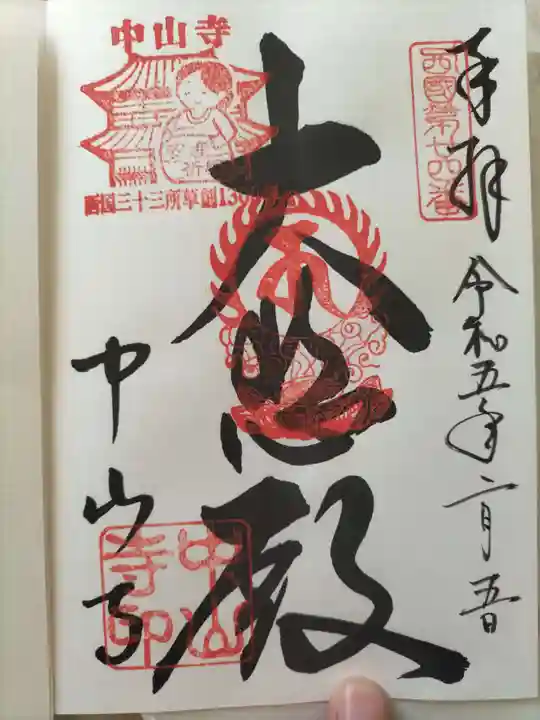 奉拝
令和五年二月五日
西國第廿四番
大悲殿
中山寺
西国三十三所草創1300年
安産祈願
中山寺
中山寺印